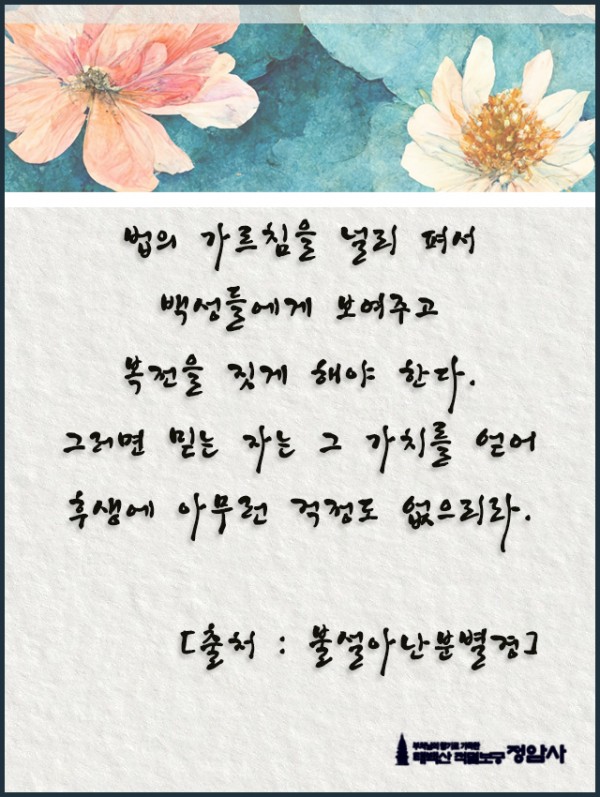 법의 가르침을 널리 펴서
백성들에게 보여주고
복전을 짓게 해야 한다.
그러면 믿는 자는 그 가치를 얻어
후생에 아무런 걱정도 없으리라.
[출처 : 불설아난분별경]
부처님의 향기로 가득한
태백산 적멸보궁 정암사